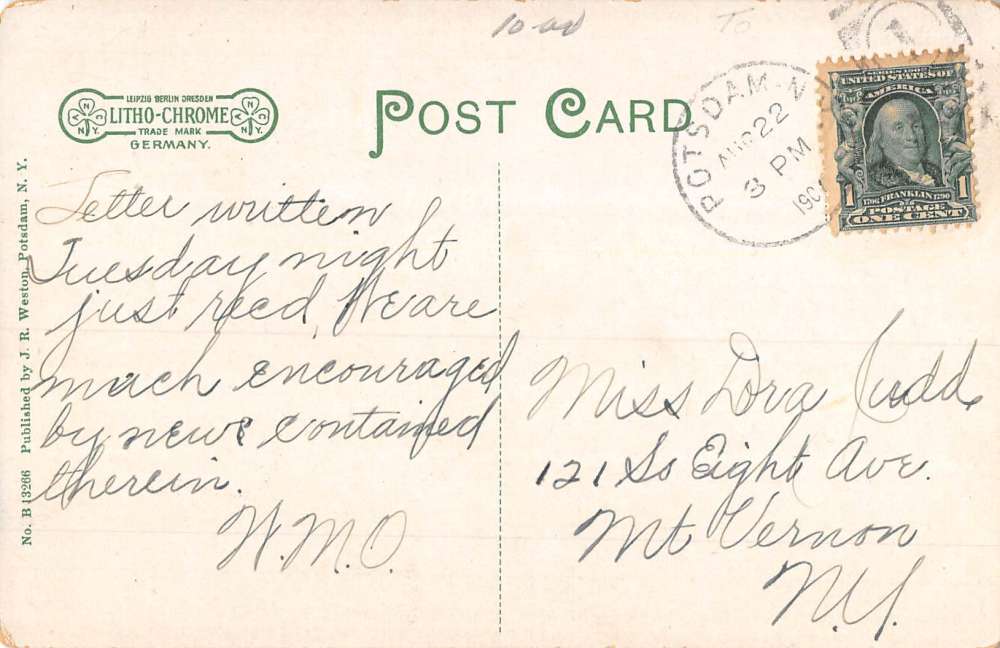 10-00
To
LEIPZIG BERLIN DRESDEN
LITHO-CHROME
TRADE MARK
GERMANY.
POST CARD
POTSDAM. N
AUG 22
3 PM
190
SERIES 1902
UNITED STATES OF
AMERICA
1706 FRANKLIN 1790
1 POSTAGE 1
ONE CENT
No. B 13266 Published by J. R. Weston, Potsdam, N. Y.
Letter written
Tuesday night
just recd. We are
much encouraged
by news contained
therein.
W.M.O.
Miss Dora Judd
121 So Eight Ave.
Mt Vernon
N.Y.